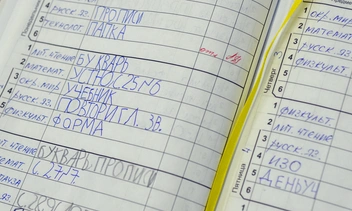 4 русск. яз. ПРОПИСИ
5 технолог. ПАПКА
1 лит. чтение БУКВАРЬ
2 математ. УСТНО С.25 №6
3 окр. мир УЧЕБНИК
4 русск. яз. ПОВТОРИТ ГЛ. ЗВ.
5 физкульт ФОРМА
лит. чтение БУКВАРЬ, ПРОПИСИ
математ С. 27 17.
1 окр. мир
2 математ
3 русск. яз.
4 физкульт
Четверг 3
1 физкульт
2 лит. чтение
3 русск. яз.
4 ИЗО
5 ДЕНЬ УЧ
Пятница 4